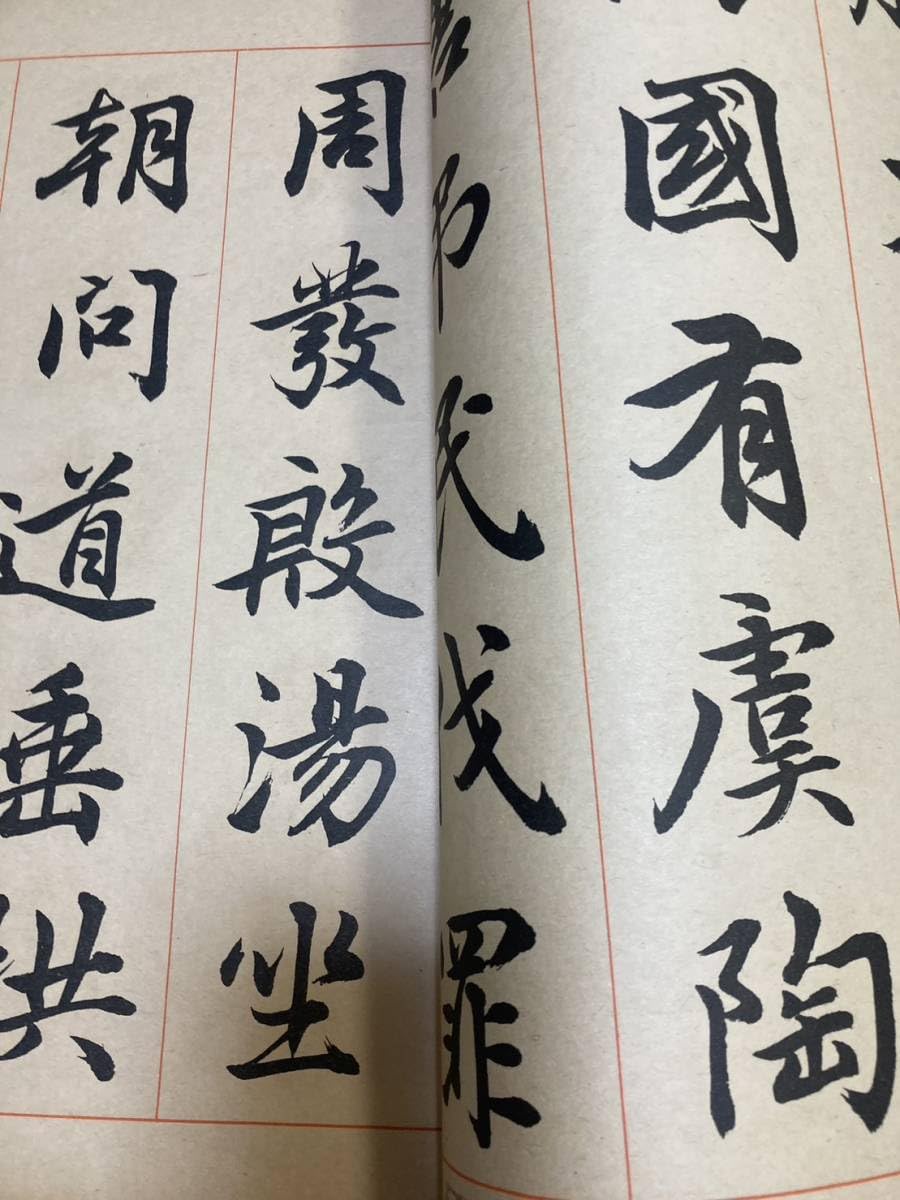 國有虞陶
弔民伐罪
周發殷湯坐
朝問道垂拱